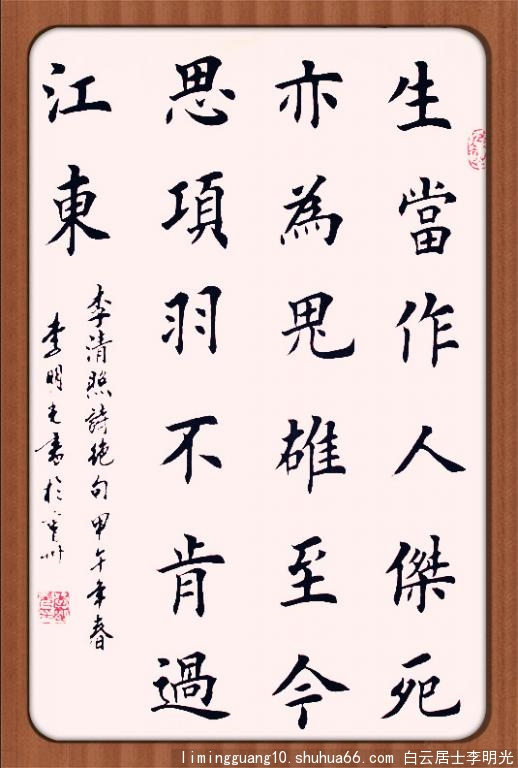 生當作人傑死
亦為鬼雄至今
思項羽不肯過
江東
李清照詩絶句甲午年春
李明光書於州
limingguang10.shuhua66.com 白云居士李明光